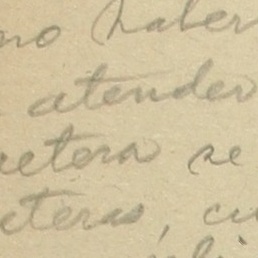 no haber
atender
retera se
eteras, cu